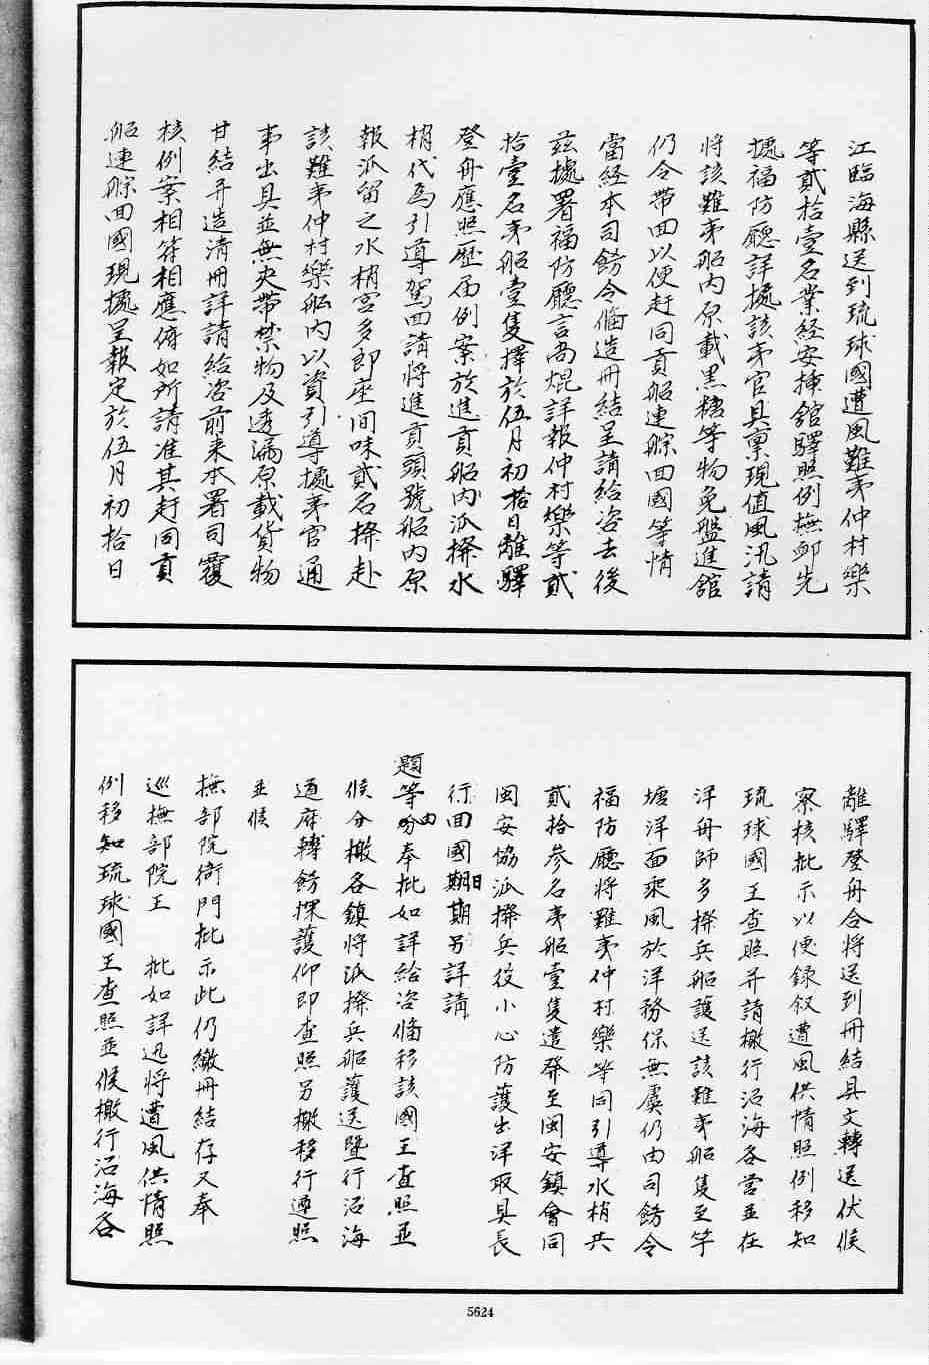 江臨海縣送到琉球國遭風難夷仲村樂
等貳拾壹名業經安揷舘驛照例撫卹先
據福防廳詳據該夷官具稟現值風汛請
將該難夷船内原載黑糖等物免盤進舘
仍令帶回以便赶同貢船連䑸回國等情
當經本司飭令偹造冊結呈請給咨去後
茲據署福防廳言尚焜詳報仲村樂等貳
拾壹名夷船壹隻擇於伍月初拾日離驛
登舟應照歷届例案於進貢船内派撥水
梢代為引導駕回請將進貢頭號船内原
報派留之水梢宮多即座間味貳名撥赴
該難夷仲村樂船内以資引導據夷官通
事出具並無夾帶禁物及透漏原載貨物
甘結并造清冊詳請給咨前来本署司覆
核例案相符相應俯如所請准其赶同貢
船連䑸回國現據呈報定於伍月初拾日
離驛登舟合將送到冊結具文轉送伏候
察核批示以便録叙遭風供情照例移知
琉球國王查照并請檄行沿海各營並在
洋舟師多撥兵船護送該難夷船隻至竿
塘洋面乘風放洋務保無虞仍由司飭令
福防廳將難夷仲村樂等同引導水梢共
貳拾參名夷船壹隻遣發至閩安鎮會同
閩安協派撥兵役小心防護出洋取具長
行回國日期另詳請
題等由分奉批如詳給咨偹移該國王查照並
候分檄各鎮將派撥兵船護送曁行沿海
道府轉飭探護仰即查照另檄移行遵照
並候
撫部院衙門批示此仍繳冊結存又奉
巡撫部院王　批如詳迅將遭風供情照
例移知琉球國王查照並候檄行沿海各
5624